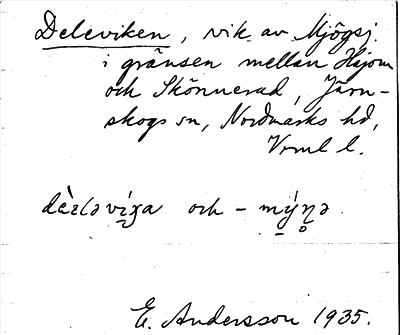 Deleviken, vik av Mjögsj.
i gränsen mellan Hajom
och Skönnerud, Järn-
skogs sn, Nordmarks hd,
Vrml l.
och –
E. Andersson 1935.